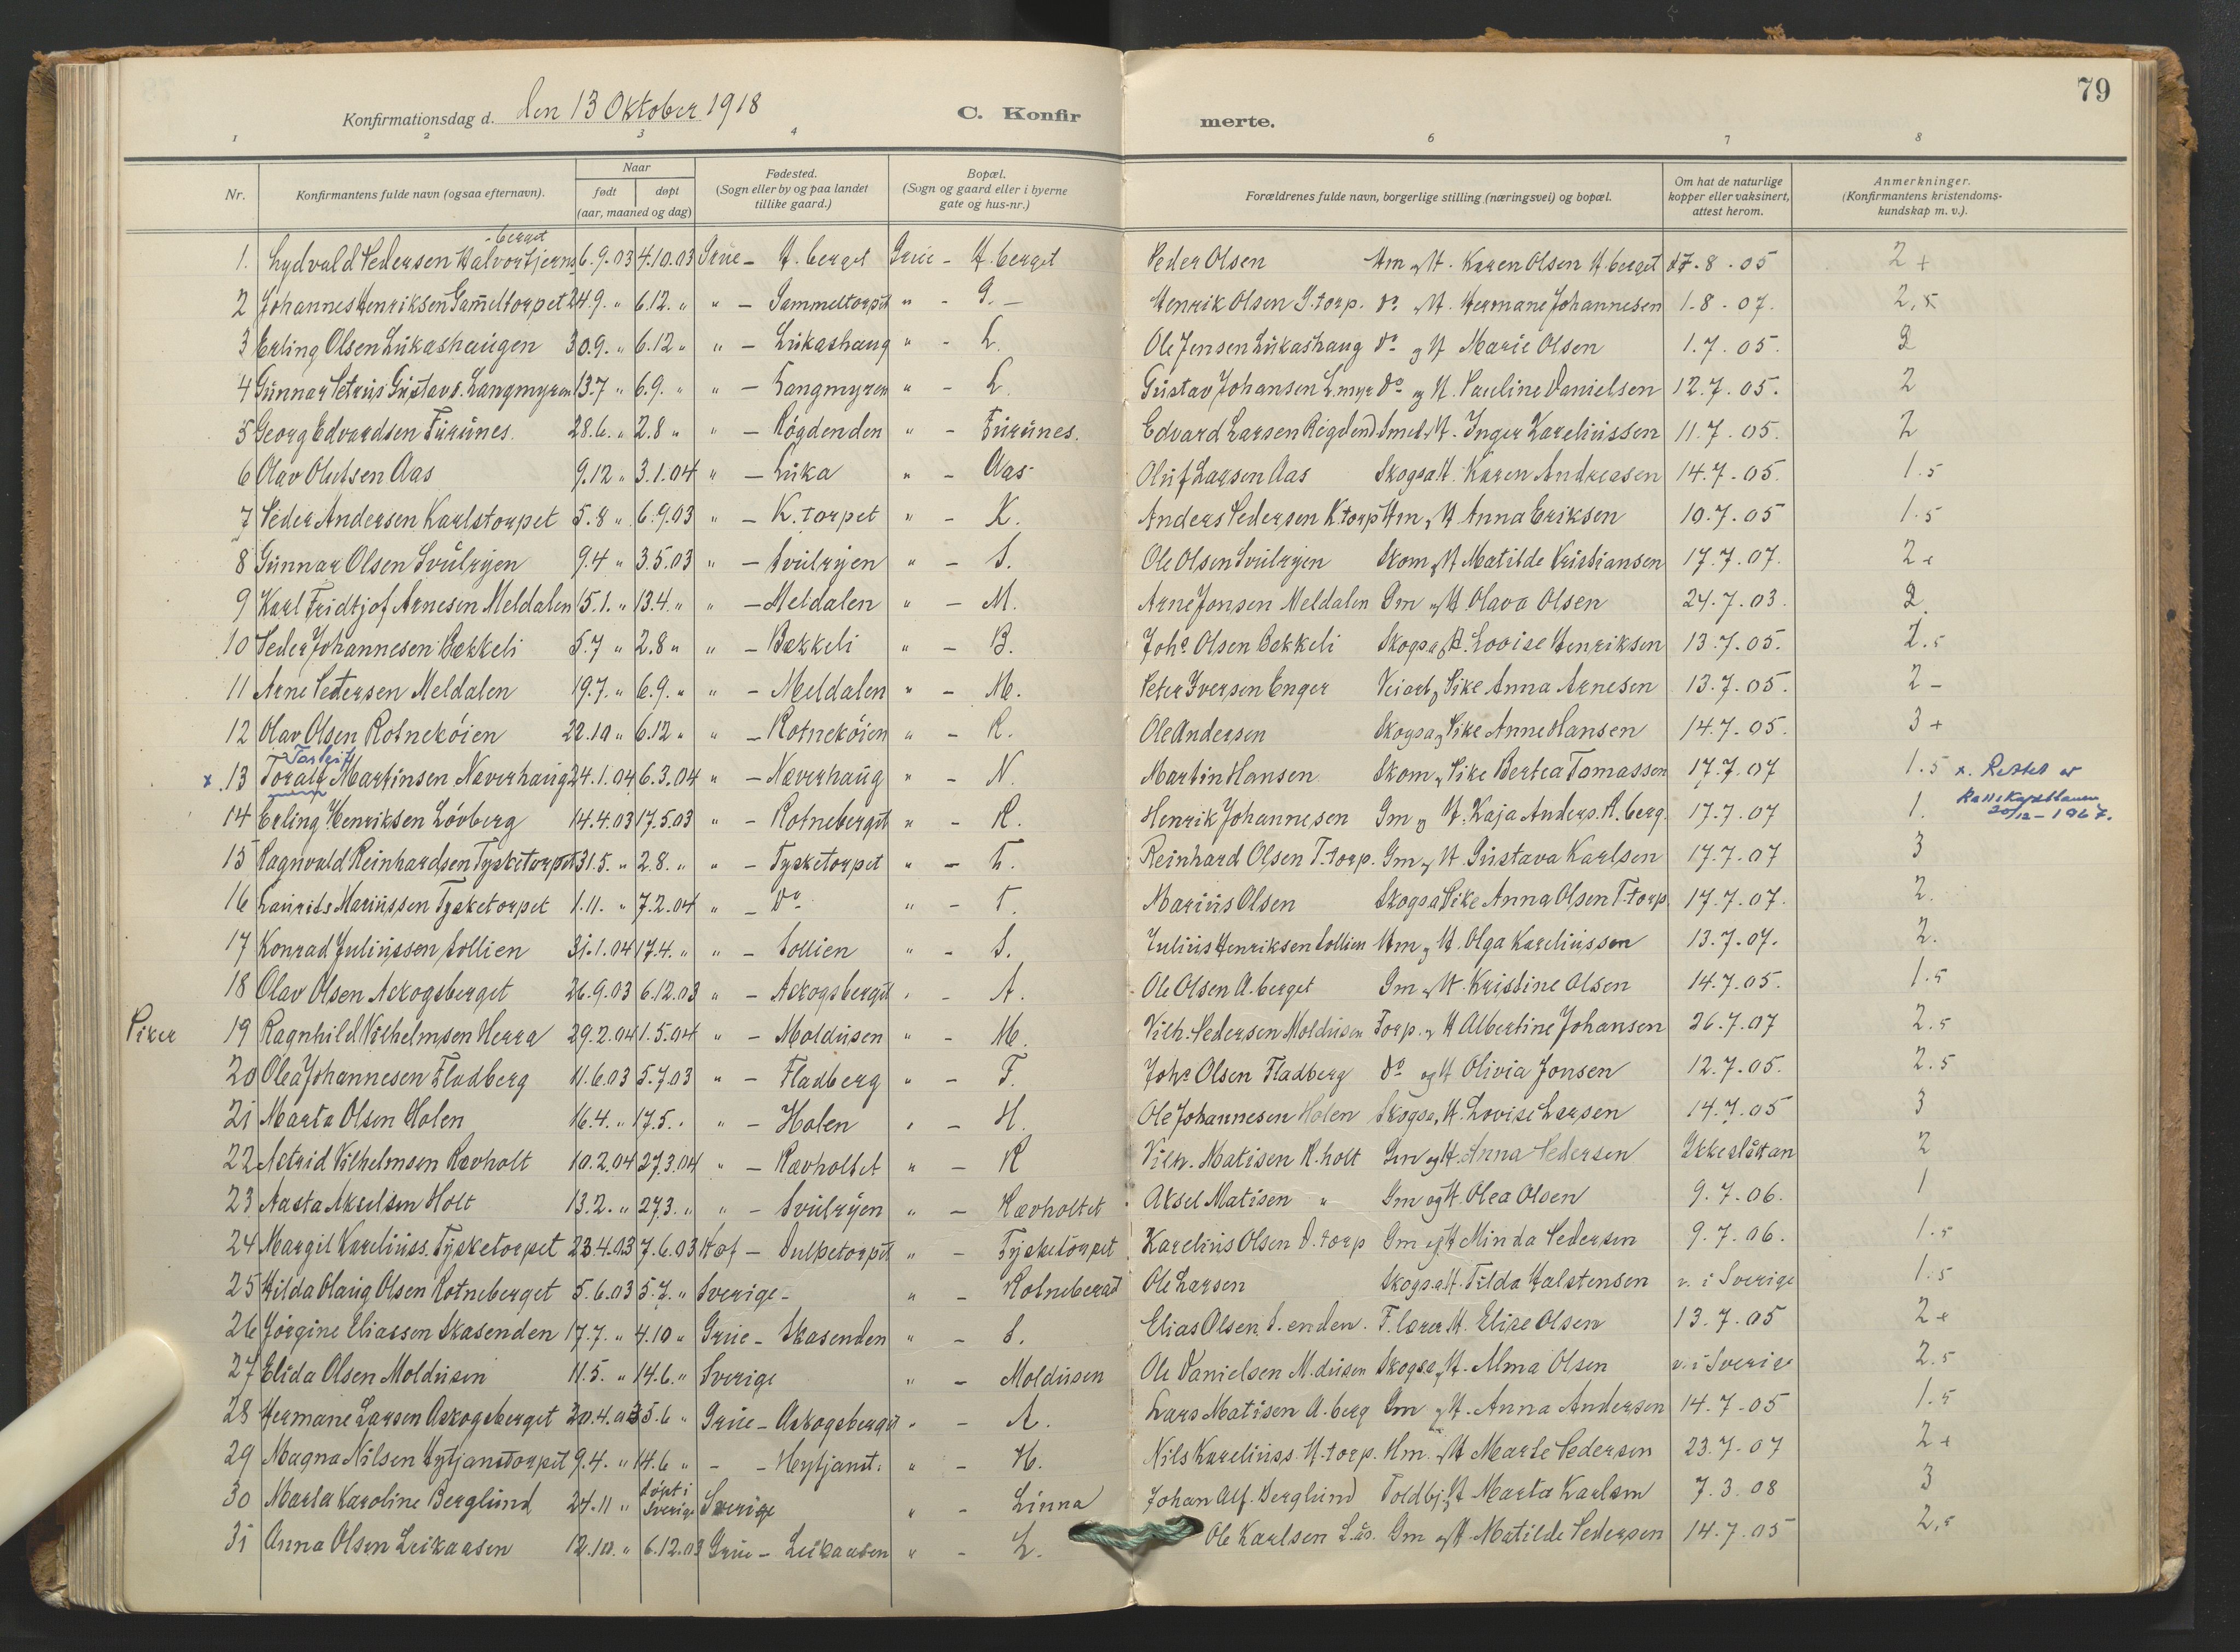 79
Konfirmationsdag d. den 13 Oktober 1918 C. Konfirmerte.
1 2 3 4 6 7 8
Nr. Konfirmantens fulde navn (ogsaa efternavn). Naar født døpt (aar, maaned og dag) Fødested. (Sogn eller by og paa landet tillike gaard.) Bopæl. (Sogn og gaard eller i byerne gate og hus-nr.) Forældrenes fulde navn, borgerlige stilling (næringsvei) og bopæl. Om hat de naturlige kopper eller vaksinert, attest herom. Anmerkninger. (Konfirmantens kristendomskundskap m. v.).
-berget
1. Lydvald Pedersen Halvortjerns 6.9.03 4.10.03 Grue - H.berget Grue - H.berget Peder Olsen Hm og H. Karen Olsen H.berget 27.8.05 2+
2 Johannes Henriksen Gameltorpet 24.9. " 6.12. " " - Gammeltorpet " - G. - Henrik Olsen G.torp. do og H. Hermane Johannesen 1.8.07. 2,5
3 Erling Olsen Lukashaugen 30.9. " 6.12 " " - Lukashaug " - L. Ole Jensen Lukashaug do og H Marie Olsen 1.7.05. 2
4 Gunnar Petrus Gustavs. Langmyren 13.7 " 6.9. " " - Langmyren " - L. Gustav Johansen L.myr do og H. Pauline Danielsen 12.7.05. 2
5 Georg Edvardsen Furunes. 28.6. " 2.8 " " - Røgdenden " - Furunes. Edvard Larsen Røgdend. Smed og H. Inger Kareliussen 11.7.05. 2
6 Olav Olufsen Aas 9.12 " 3.1.04 " - Luka " - Aas Oluf Larsen Aas Skogsa. H. Karen Andreasen 14.7.05. 1.5
7 Peder Andersen Karlstorpet 5.8 " 6.9.03 " - K.torpet " - K. Anders Pedersen K.torp Hm og H Anna Eriksen 10.7.05 1.5
8 Gunnar Olsen Svulryen 9.4 " 3.5.03 " - Svulryen " - S. Ole Olsen Svulryen Skom og H Matilde Kristiansen 17.7.07. 2+
9 Karl Fridtjof Arnesen Meldalen 15.1. " 13.4. " " - Meldalen " - M. Arne Jonsen Meldalen Gm og H Olava Olsen 24.7.03. 2.
10 Peder Johannesen Bækkeli 5.7 " 2.8 " " - Bækkeli " - B. Johs. Olsen Bækkeli Skogsa og H. Lovise Henriksen 13.7.05. 2.5
11 Arne Petersen Meldalen 19.7. " 6.9. " " - Meldalen " - M. Peter Iversen Enger Veiarb og Pike Anna Arnesen 13.7.05. 2-
12 Olav Olsen Rotnekøien 22.10 " 6.12 " " - Rotnekøien " - R. Ole Andersen Skogsa og Pike Anne Hansen 14.7.05. 3+
Torleif
x 13 Toralf Martinsen Næverhaug 24.1.04 6.3.04 " - Næverhaug " - N. Martin Hansen Skom og Pike Bertea Tomassen 17.7.07 1.5 x. Rettet av
14 Erling Henriksen Løvberg 14.4.03 17.5.03 " - Rotneberget " - R. Henrik Johannesen Gm og H. Kaja Anders. R.berg. 17.7.07 1. 20/12-1967.
15 Ragnvald Reinhardsen Tysketorpet 31.5. " 2.8. " " - Tysketorpet " - T. Reinhard Olsen T-torp. Gm og H Gustava Karlsen 17.7.07 3
16 Laurits Mariussen Tysketorpet 1.11. " 7.2.04 " - do " - T. Marius Olsen Skogsa Pike Anna Olsen T-torp 17.7.07. 2.
17 Konrad Juliussen Sollien 31.1.04 17.4. " " - Sollien " - S. Julius Henriksen Sollien Hm og H. Olga Kareliussen 13.7.07. 2.
18 Olav Olsen Askogsberget 26.9.03 6.12.03 " - Askogsberget " - A. Ole Olsen A.berget Gm og H. Kristine Olsen 14.7.05. 1.5
Piker 19 Ragnhild Vilhelmsen Herra 29.2.04 1.5.04 " - Moldusen " - M. Vilh. Pedersen Moldusen Torp. og H Albertine Johansen 26.7.07 2.5
20 Olea Johannesen Fladberg 11.6.03 5.7.03 " - Fladberg " - F. Johs Olsen Fladberg do og H Olivia Jonsen 12.7.05. 2.5
21 Marta Olsen Holen 16.4. " 17.5. " " - Holen " - H. Ole Johannesen Holen Skogsa, H. Lovise Larsen 14.7.05 3
22 Astrid Vilhelmsen Rævholt 10.2.04 27.3.04 " - Rævholtet " - R Vilh. Matisen R.holt Gm og H. Anna Pedersen Ikke slåt an 2
23 Aasta Akselsen Holt 13.2. " 27.3. " " - Svulryen " - Rævholtet Aksel Matisen " Gm og H. Olea Olsen 9.7.06. 1
24 Margit Kareliuss. Tysketorpet 23.4.03 7.6.03 Hof - Dulpetorpet " - Tysketorpet Karelius Olsen D.torp Gm og H Minda Pedersen 9.7.06. 1.5
25 Hilda Olaug Olsen Rotneberget 5.6.03 5.7. " Sverige - " - Rotneberget Ole Larsen Skogsa. H. Tilda Halstensen v. i Sverige 1.5
26 Jørgine Eliassen Skasenden 17.7. " 4.10 " Grue - Skasenden " - S. Elias Olsen S.enden. F.lærer H. Elise Olsen 13.7.05 2+
27 Elida Olsen Moldusen 11.5. " 14.6. " Sverige " - Moldusen Ole Danielsen M.dusen Skogsa og H. Alma Olsen v. i Sverige 2.5
28 Hermane Larsen Askogsberget 20.4.03 5.6 " Grue - Askogsberget " - A. Lars Matisen A.berg Gm og H. Anna Andersen 14.7.05 1.5
29 Magna Nilsen Hytjanstorpet 9.4. " 14.6 " - - Heytjanst: " - H. Nils Kareliuss. H-torp. Hm. og H Marte Pedersen 23.7.07 2+
30 Marta Karoline Berglund 24.11 " døpt i Sverige Sverige " - Linna Johan Alf. Berglund Toldbj. H Marta Karlsen 7.3.08 3
31 Anna Olsen Leikaasen 12.10. " 6.12.03 Grue - Leikaasen " - L. Ole Karlsen L.ås. Gm og H. Matilde Pedersen 14.7.05 2,5